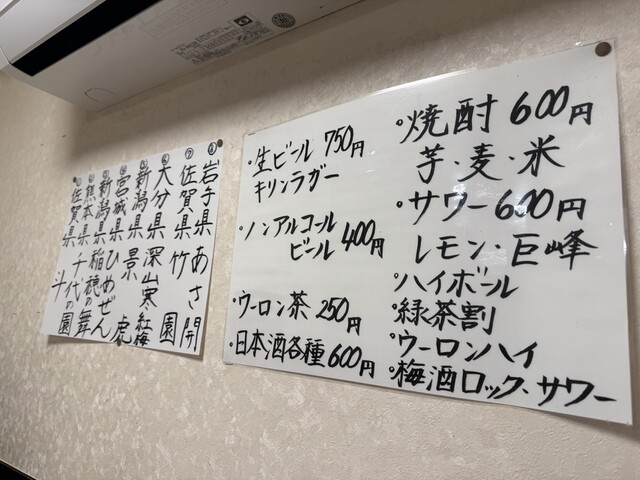 ・焼酎 600円
芋・麦・米
・サワー 600円
レモン・巨峰
・ハイボール
・緑茶割
・ウーロンハイ
・梅酒ロック、サワー
・生ビール 750円
キリンラガー
・ノンアルコール
ビール 400円
・ウーロン茶 250円
・日本酒各種 600円
⑧ 岩手県 あさ開
⑦ 佐賀県 竹園
⑥ 大分県
⑤ 新潟県 深山寒紅梅
④ 宮城県 景虎
③ 新潟県 ひめぜん
② 熊本県 稲穂の舞
① 佐賀県 千代の園
斗